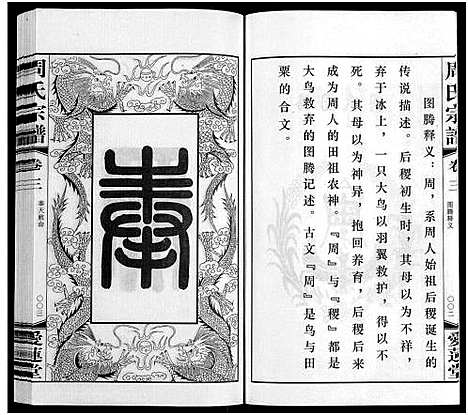 周氏宗譜
卷三
图腾释义
〇〇二
愛蓮堂
图腾释义：周，系周人始祖后稷诞生的
传说描述。后稷初生时，其母以为不祥，
弃于冰上，一只大鸟以羽翼救护，得以不
死。其母以为神异，抱回养育，后稷后来
成为周人的田祖农神。『周』与『稷』都是
大鸟救弃的图腾记述。古文『周』是鸟与田
粟的合文。
奉
周氏宗譜
卷三
奉天敕命
〇〇三
愛蓮堂